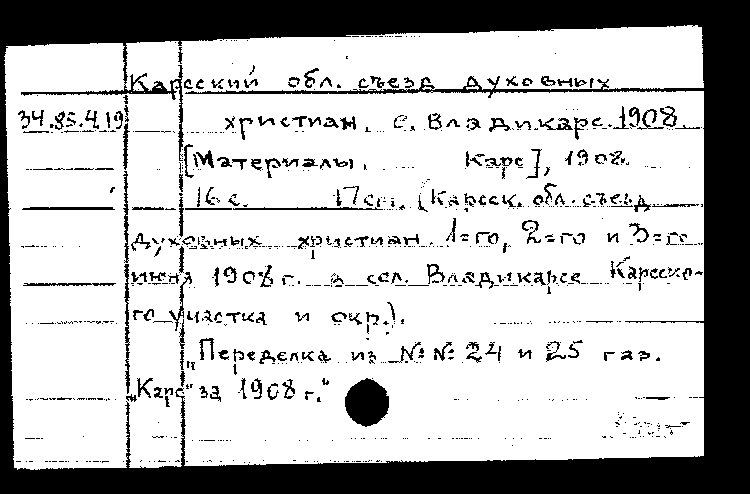 Карсский обл. съезд духовных
34.85.4.19 христиан, с. Владикарс. 1908.
[Материалы. Карс], 1908.
16 с. 17 cm. (Карсск. обл. съезд
духовных христиан 1=го, 2=го и 3=го
июня 1908 г. в сел. Владикарсе Карсско-
го участка и окр.).
„Переделка из №№ 24 и 25 газ.
„Карс" за 1908 г."